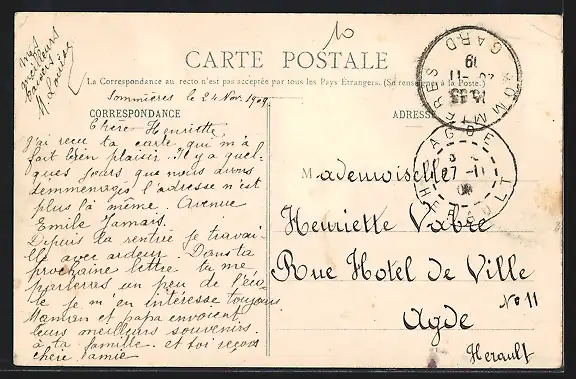 10
mes
meilleurs
baisers
M. Louise
CARTE POSTALE
La Correspondance au recto n'est pas acceptée par tous les Pays Étrangers. (Se renseigner à la Poste.)
Sommières le 24 Nov. 1909.
CORRESPONDANCE
Chère Henriette
J'ai reçu ta carte qui m'a
fait bien plaisir. Il y a quel-
ques jours que nous avons
demmenagés l'adresse n'est
plus la même. Avenue
Emile Jamais.
Depuis la rentrée je travai-
lle avec ardeur. Dans ta
prochaine lettre tu me
parleras un peu de l'éco-
le je m'en intéresse toujours
Maman et papa envoient
leurs meilleurs souvenirs.
à ta famille. et toi reçois
chère amie
ADRESSE
Mademoiselle
Henriette Vabre
Rue Hotel de Ville
No 11
Agde
Herault
SOMMIERES
GARD
11
19
27-11
09
HERAULT